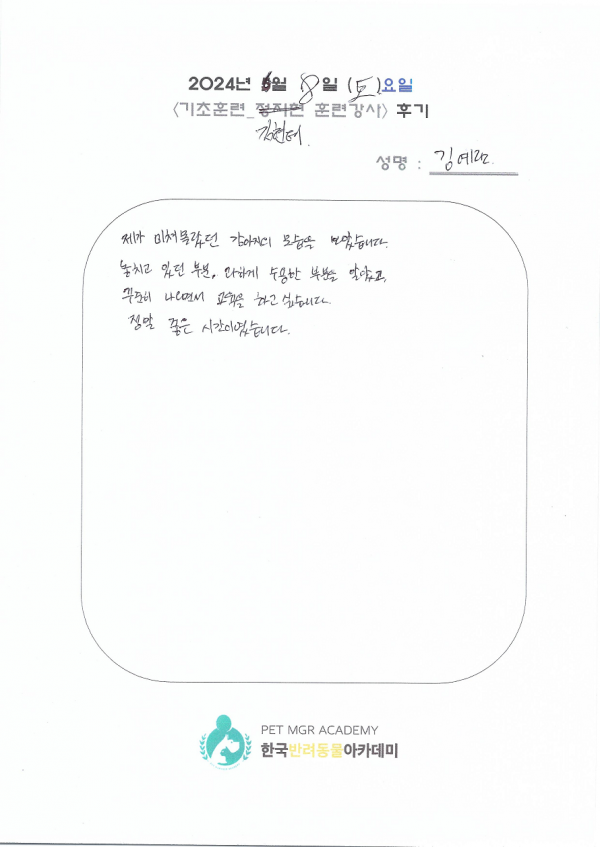 2024년 6월 8일 (토)요일
<기초훈련_ 훈련강사> 후기
성명 : 김예란
제가 미처몰랐던 강아지의 모습을 보았습니다.
놓치고 있던 부분, 과하게 수용한 부분을 알았고,
꾸준히 나오면서 교육을 하고 싶습니다.
정말 좋은 시간이였습니다.
PET MGR ACADEMY
한국반려동물아카데미